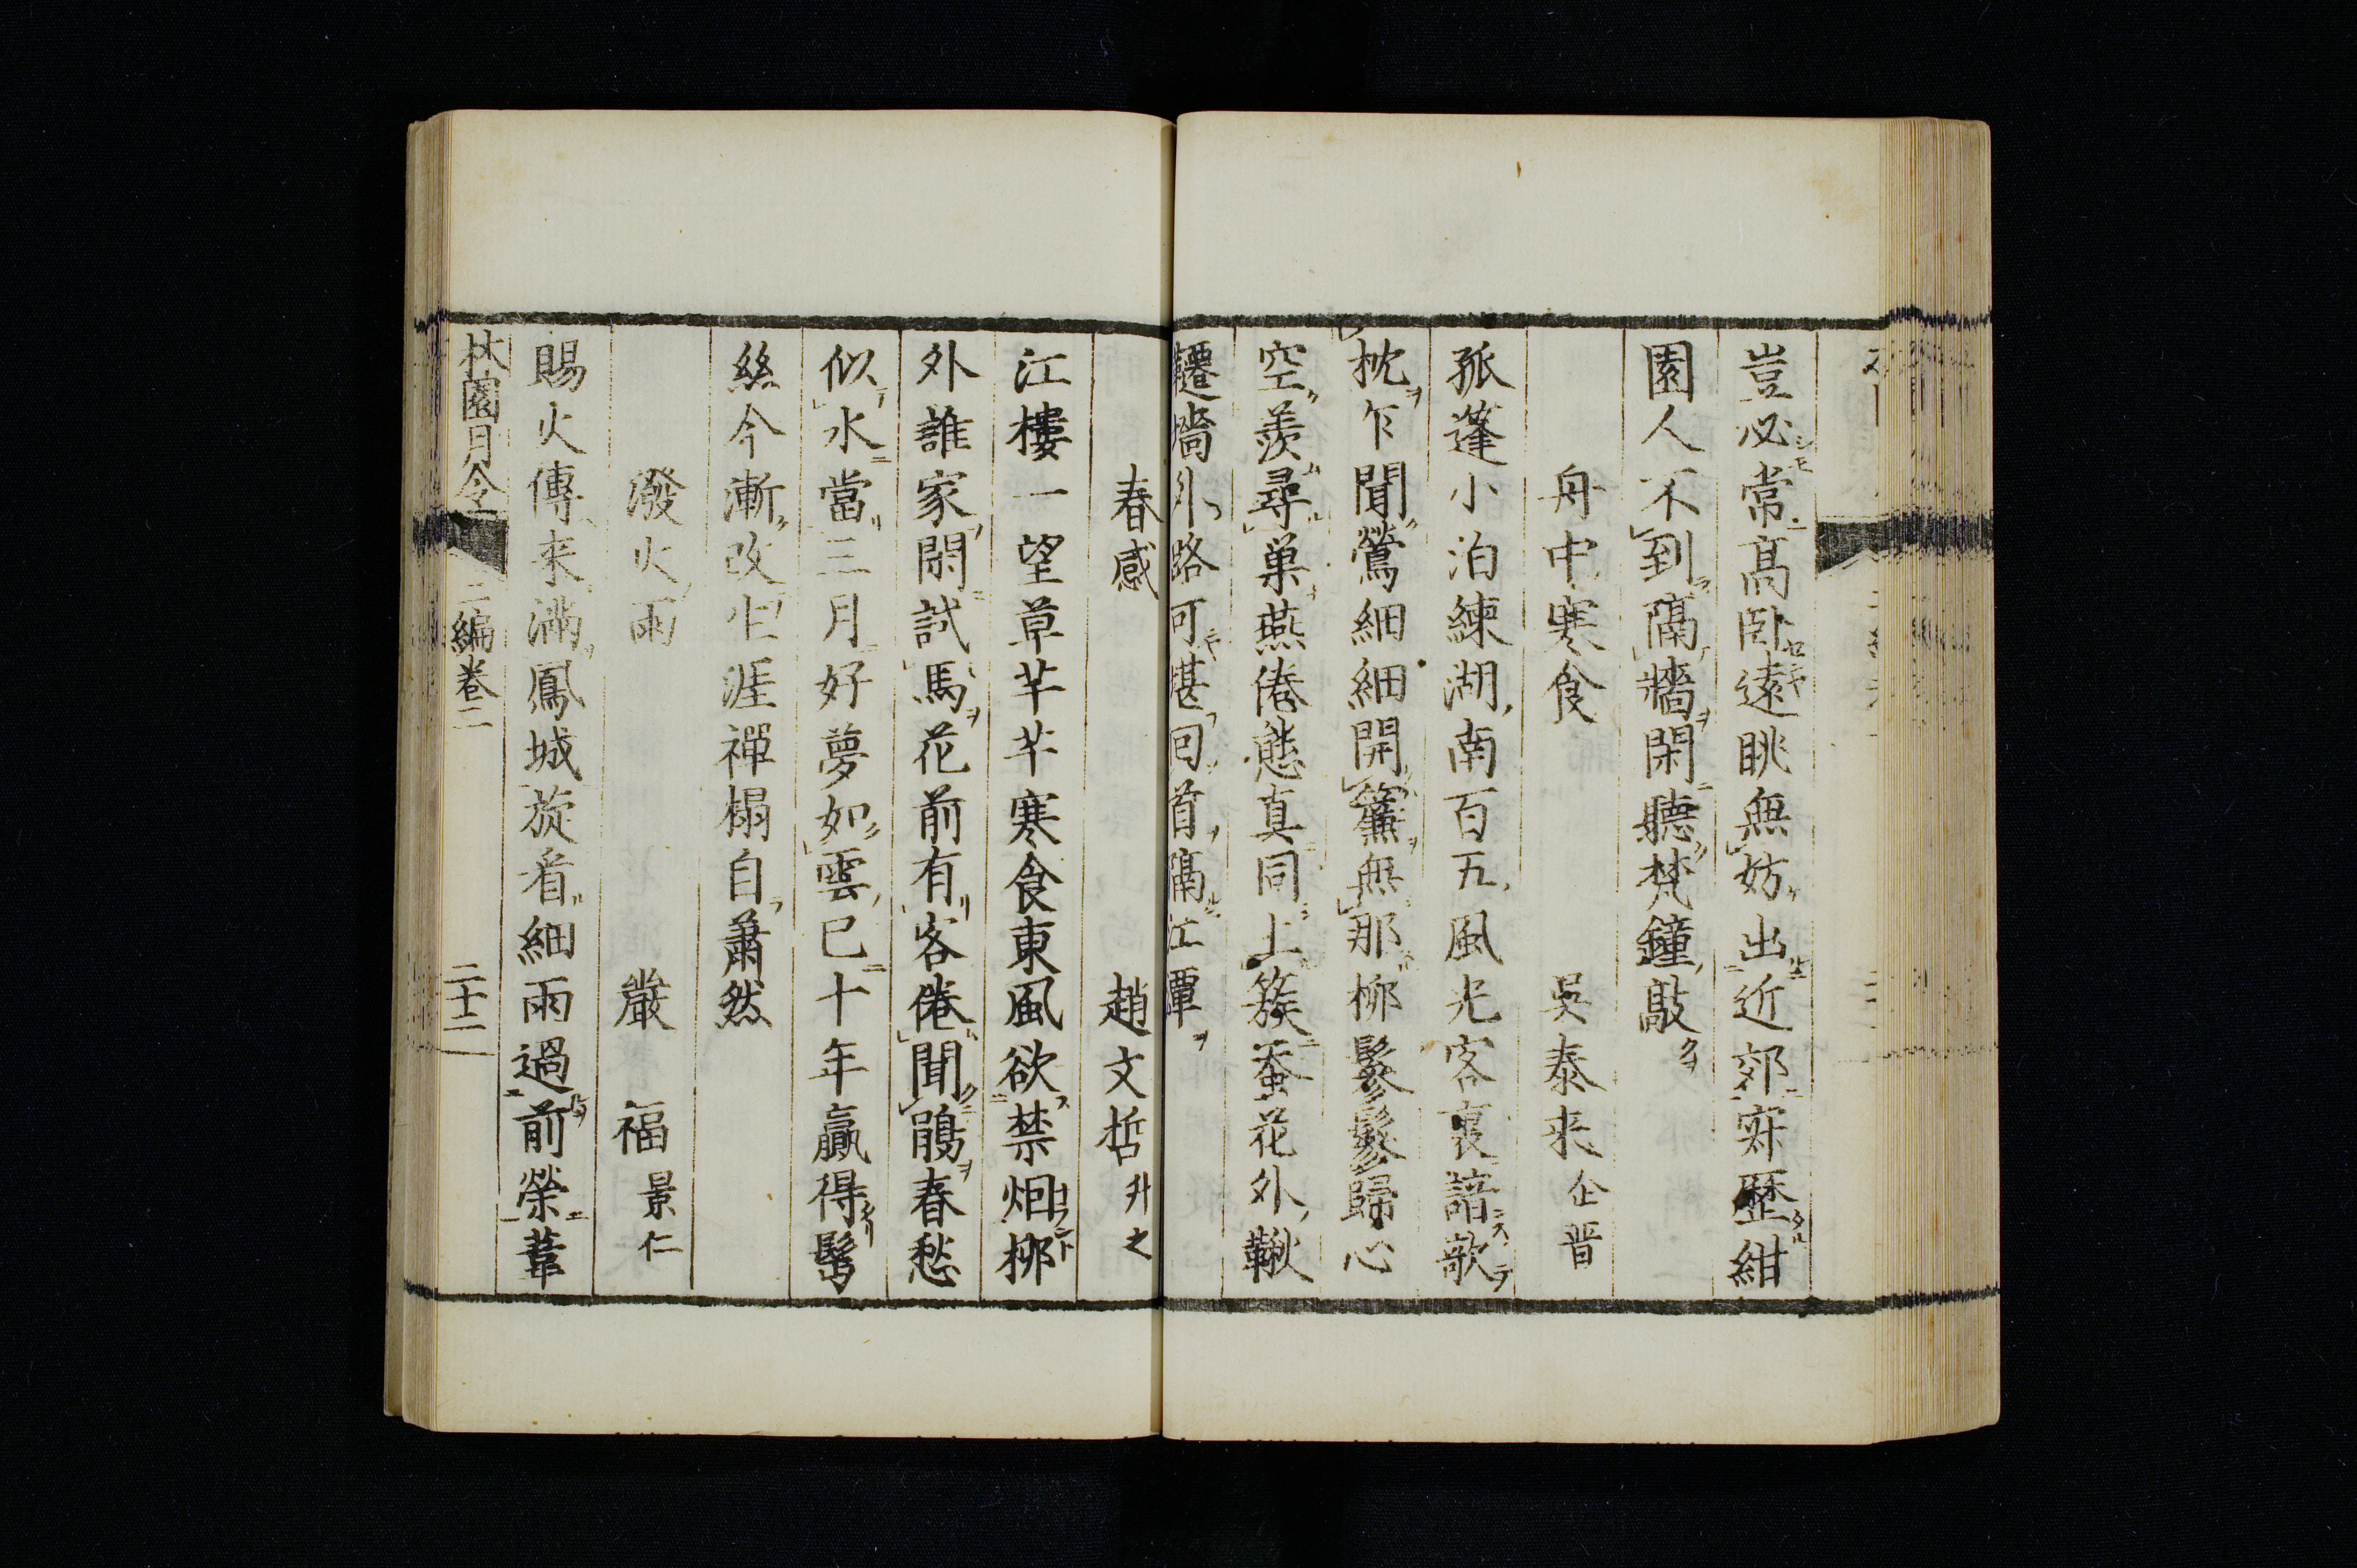 豈必常高臥遠眺無妨出近郊寐歷紺
園人不到隔牆閑聽梵鐘敲
舟中寒食 吳泰来 企晋
孤蓬小泊練湖南百五風光客裏諳欹
枕乍聞鶯細細開簾無那柳鬖鬖歸心
空羨尋巢燕倦態真同上簇蚕花外鞦
韆墻外路可堪回首隔江潭
春感 趙文哲 升之
江樓一望草芊芊寒食東風欲禁烟柳
外誰家閑試馬花前有客倦聞鵑春愁
似水當三月好夢如雲已十年贏得髩
絲今漸改生涯禪榻自蕭然
潑火雨 嚴福 景仁
賜火傳来滿鳳城旋看細雨過前榮葦
林園月令 二編卷二 二十二